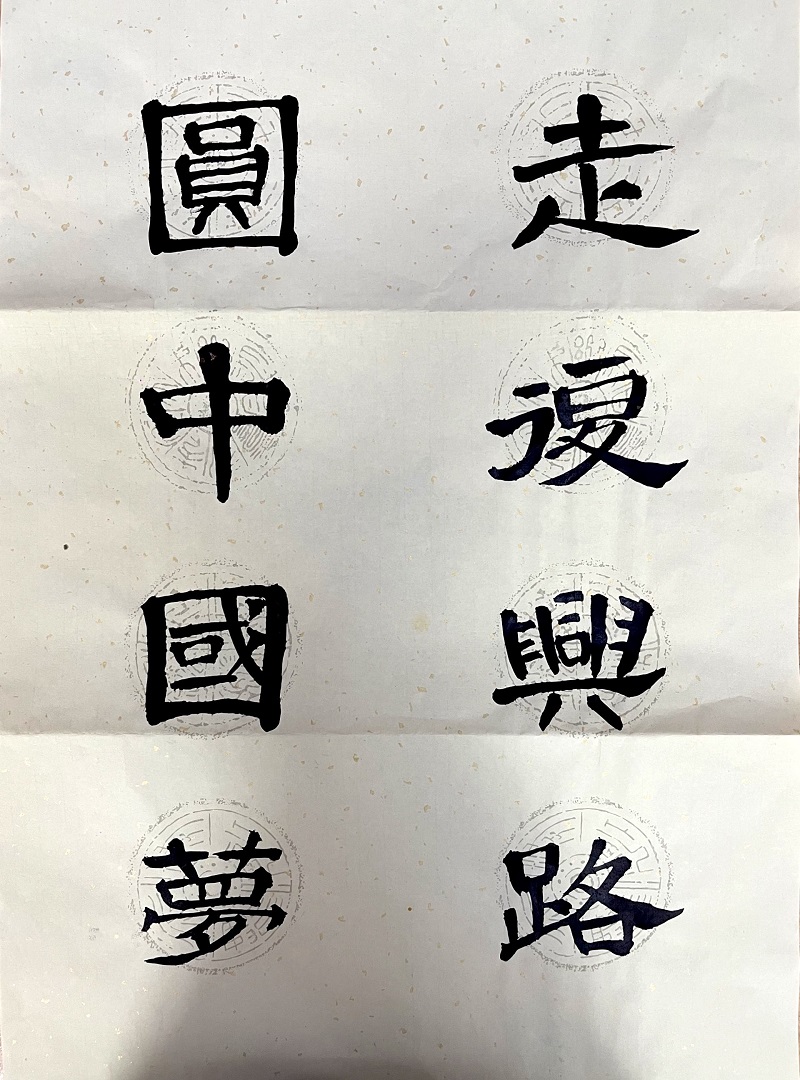 走復興路
圓中國夢